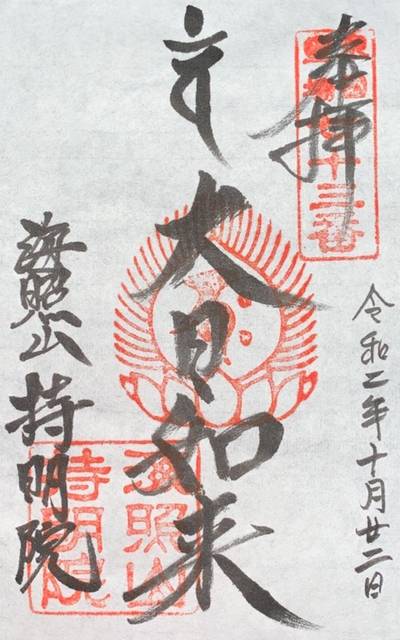 奉拝
十三番
令和二年十月廿二日
大日如来
海照山 持明院
海照山
持明院